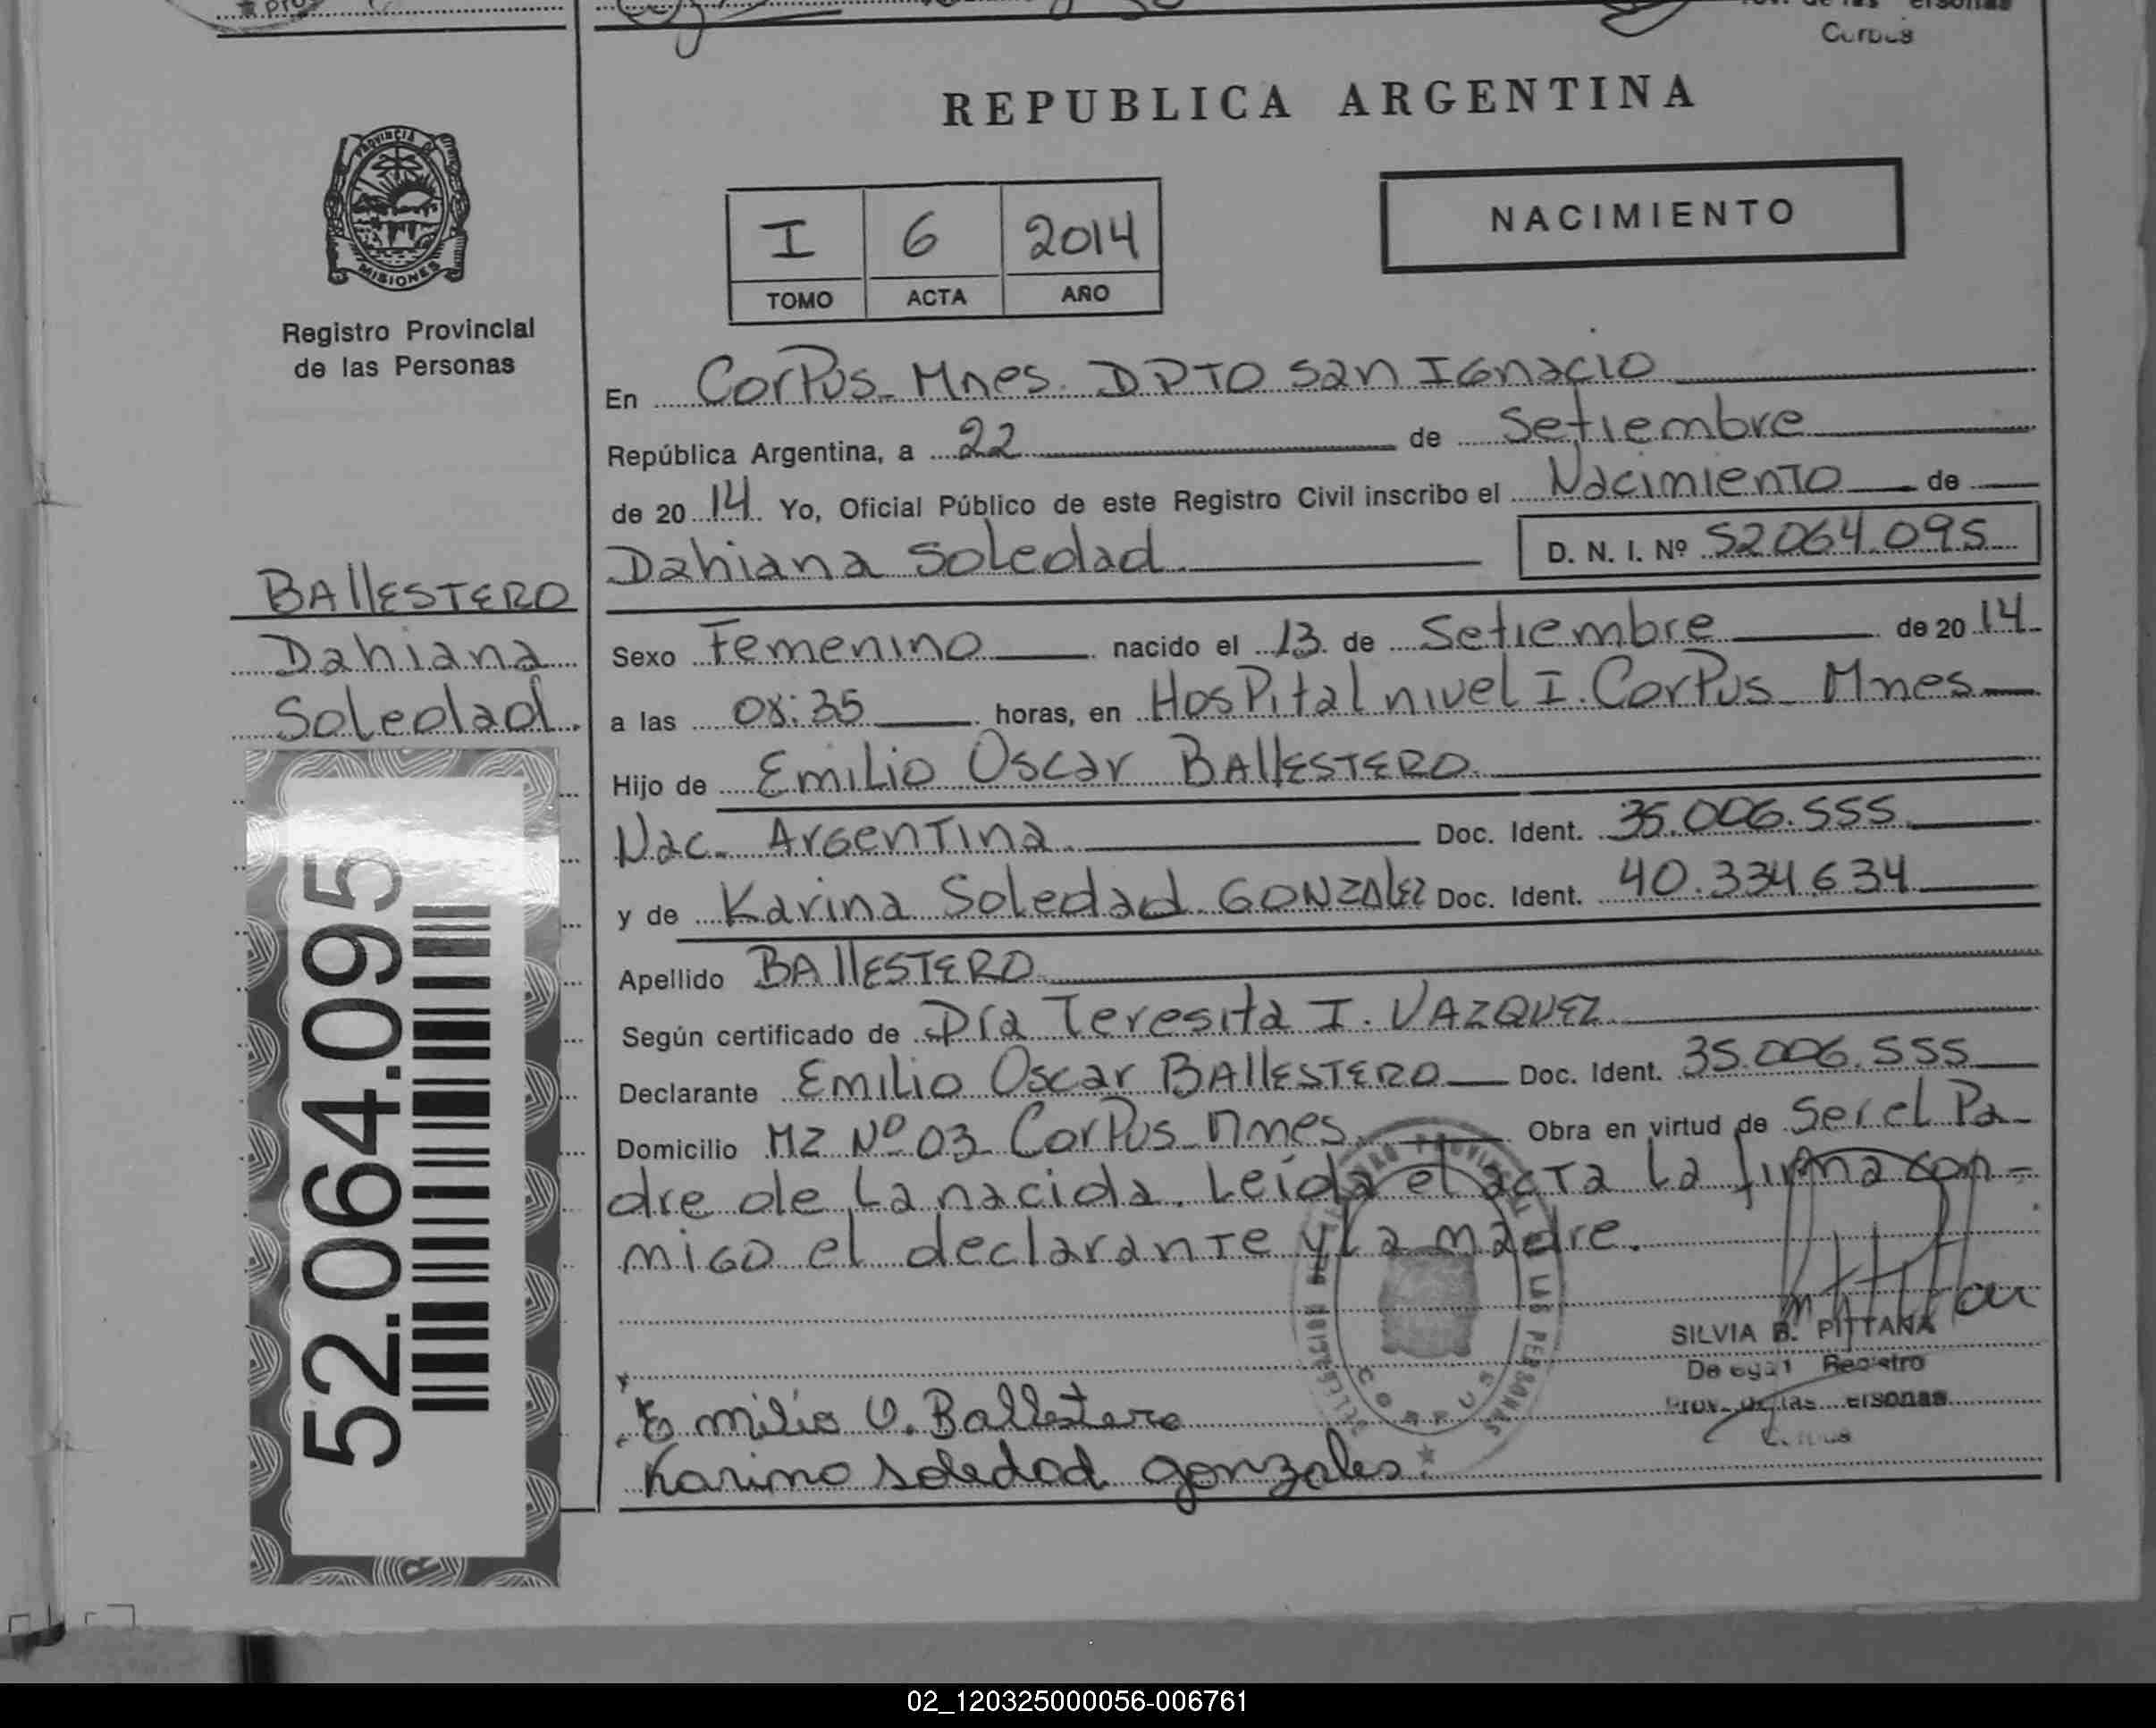 Corpus
REPUBLICA ARGENTINA
PROVINCIA DE
MISIONES
Registro Provincial
de las Personas
I 6 2014
TOMO ACTA AÑO
NACIMIENTO
En Corpus Mnes. DPTO San Ignacio
República Argentina, a 22 de Setiembre
de 2014 Yo, Oficial Público de este Registro Civil inscribo el Nacimiento de
Dahiana Soledad D. N. I. Nº 52064.095
BAllESTERO
Dahiana
Soledad.
Sexo Femenino nacido el 13 de Setiembre de 2014
a las 08:35 horas, en Hospital nivel I. Corpus Mnes
Hijo de Emilio Oscar BAllESTERO
Nac. Argentina Doc. Ident. 35.006.555
y de Karina Soledad GONZALEZ Doc. Ident. 40.334.634
Apellido BAllESTERO
Según certificado de Dra Teresita I. VAZQUEZ
Declarante Emilio Oscar BAllESTERO Doc. Ident. 35.006.555
Domicilio MZ Nº 03 Corpus Mnes Obra en virtud de Ser el Pa-
dre de La nacida. Leída el acta la firma con-
migo el declarante y la madre.
52.064.095
CORPUS
SILVIA B. PITTANA
Registro
Prov. de las Personas
Emilio O. Ballestero
Karina soledad gonzales
02_120325000056-006761